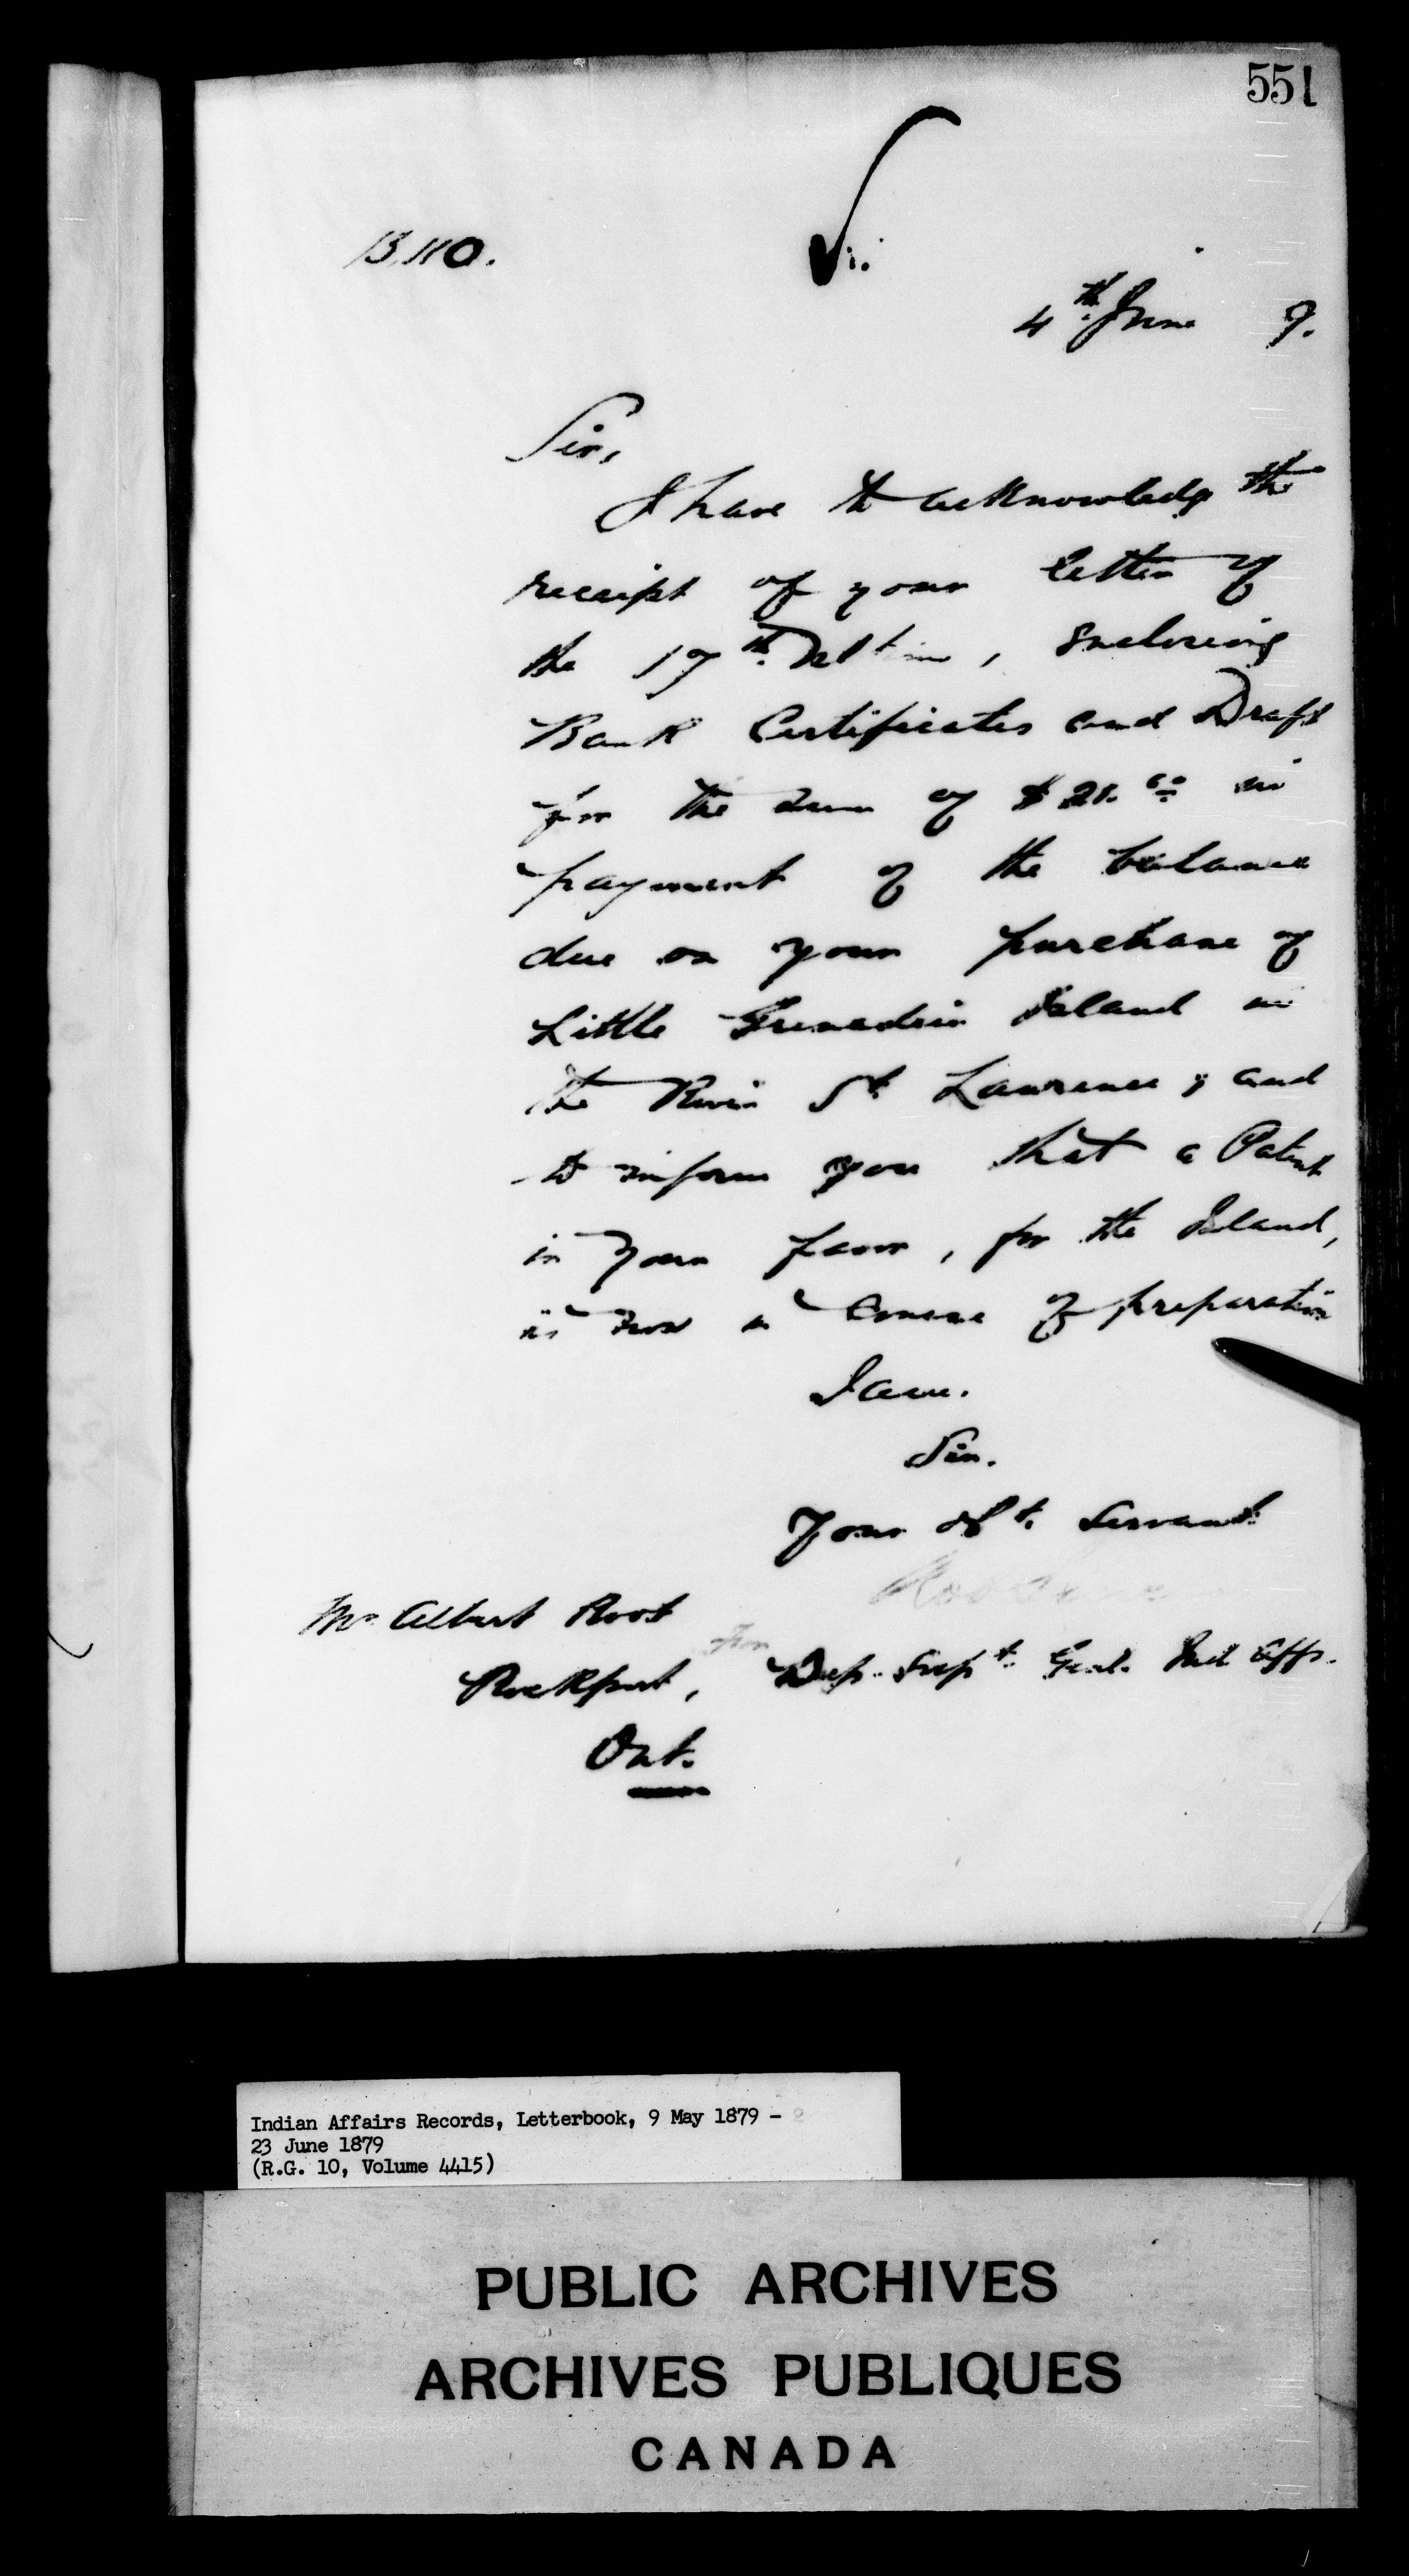 551
B,110.
4th June 9.
Sir,
I have to acknowledge the
receipt of your letter of
the 17th Ultimo, enclosing
Bank Certificates and Draft
for the sum of in
payment of the balance
due on your purchase of
Little Grenadier Island in
the River St Lawrence; and
to inform you that a Patent
in your favor, for the Island,
is now in course of preparation
I am.
Sir.
Your obt. Servant
Mr Albert Root
For Dep. Supt. Genl. Ind Affs.
Rockport,
Ont.
Indian Affairs Records, Letterbook, 9 May 1879 -
23 June 1879
(R.G. 10, Volume 4415)
PUBLIC ARCHIVES
ARCHIVES PUBLIQUES
CANADA